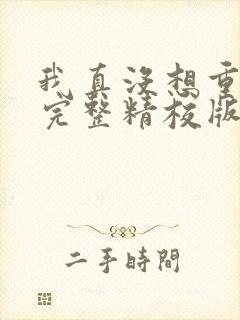 我真没想重
完整精校版
二手時間